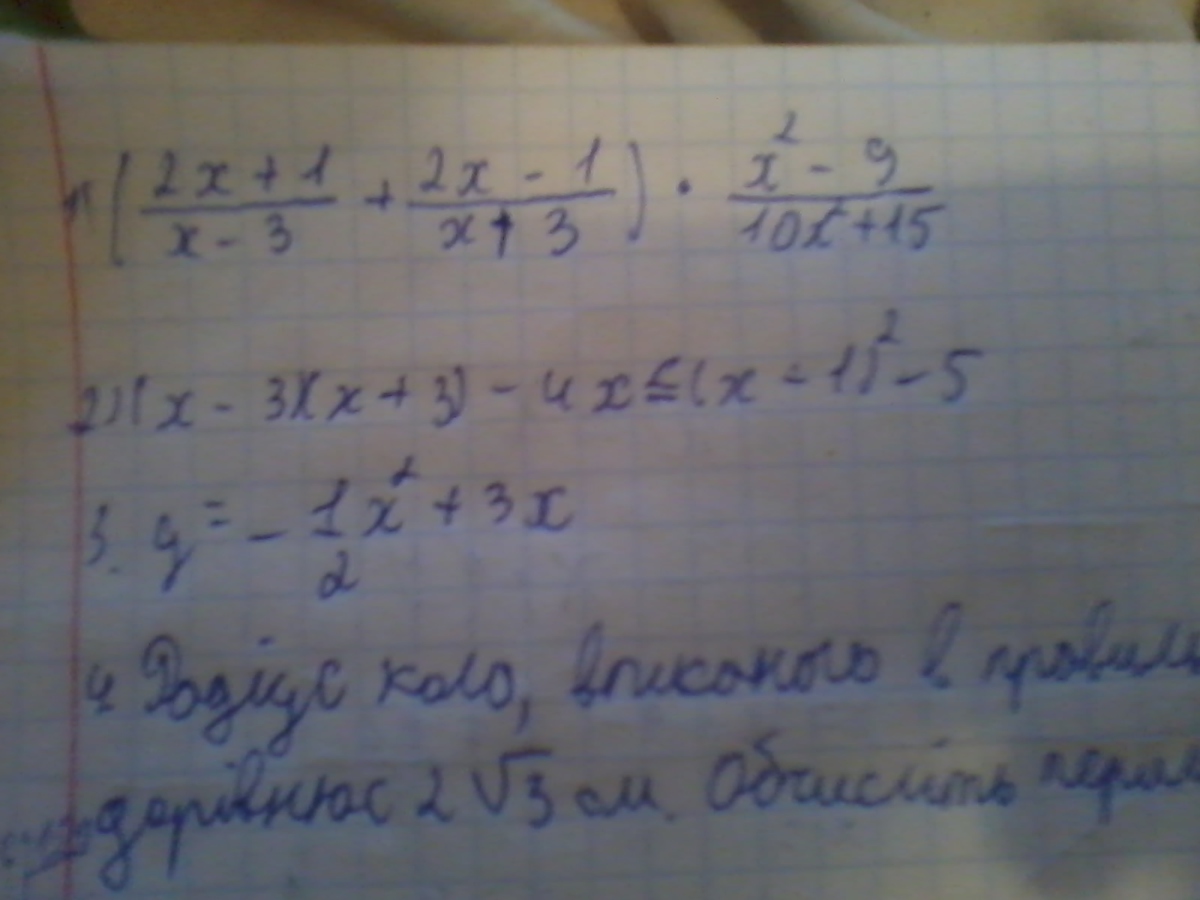 1) (2x + 1 / x - 3 + 2x - 1 / x + 3) · x² - 9 / 10x² + 15
2) (x - 3)(x + 3) - 4x ≤ (x - 1)² - 5
3. y = - 1/2 x² + 3x
4 Радіус коло, вписаного в правиль
дорівнює 2√3 см. Обчисліть перим